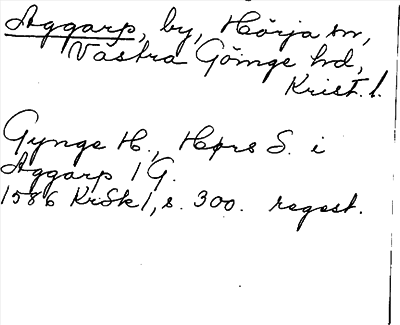 Aggarp, by, Hörja sn,
Västra Göinge hd,
Krist. l.
Gynge H., Hprs S. i
Aggarp 1 G.
1586 KrSk 1, s. 300. regest.